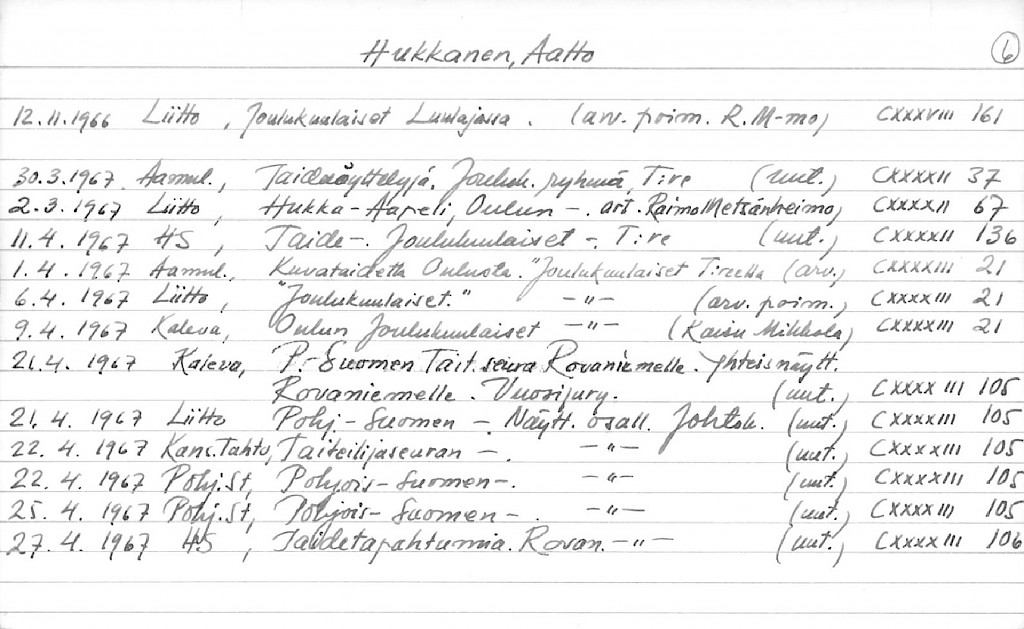 Hukkanen, Aatto 6
12.11.1966 Liitto, Joulukuulaiset Luulajassa. (arv. poim. R. M-mo) CXXXVIII 161
30.3.1967 Aamul., Taidenäyttelyjä. Jouluk. ryhmä, Tire (uut.) CXXXXII 37
2.3.1967 Liitto, Hukka-Aapeli, Oulun -. art. Raimo Metsänheimo) CXXXXII 67
11.4.1967 HS, Taide-. Joulukuulaiset -. Tire (uut.) CXXXXII 136
1.4.1967 Aamul., Kuvataidetta Oulusta. "Joulukuulaiset Tirella (arv.) CXXXXIII 21
6.4.1967 Liitto, "Joulukuulaiset." -"- (arv. poim.) CXXXXIII 21
9.4.1967 Kaleva, Oulun Joulukuulaiset -"- (Kaisu Mikkola) CXXXXIII 21
21.4.1967 Kaleva, P.-Suomen Tait. seura Rovaniemelle. Yhteisnäytt.
Rovaniemelle. Vuosijury. (uut.) CXXXXIII 105
21.4.1967 Liitto Pohj-Suomen -. Näytt. osall. Johtok. (uut.) CXXXXIII 105
22.4.1967 Kans.Tahto, Taiteilijaseuran -. -"- (uut.) CXXXXIII 105
22.4.1967 Pohj.St, Pohjois-Suomen-. -"- (uut.) CXXXXIII 105
25.4.1967 Pohj.St, Pohjois-Suomen-. -"- (uut.) CXXXXIII 105
27.4.1967 HS, Taidetapahtumia. Rovan. -"- (uut.) CXXXXIII 106